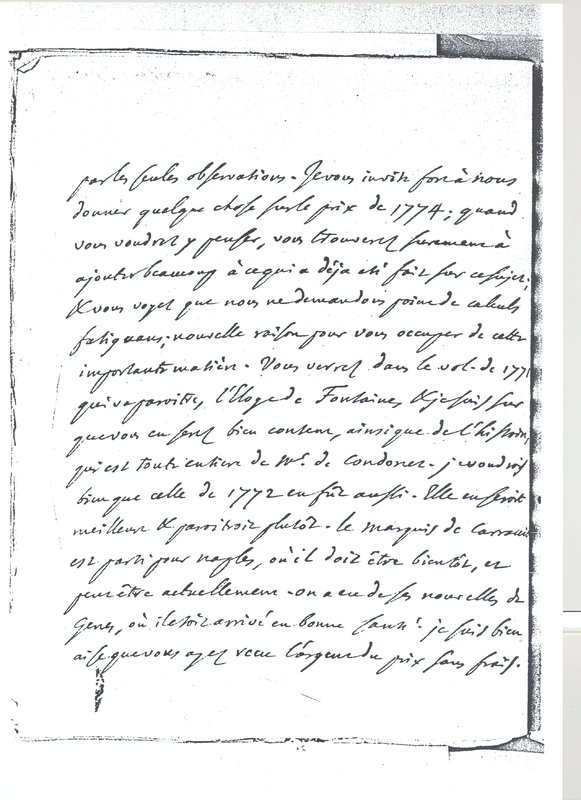 par les seules observations. Je vous invite fort à nous
donner quelque chose sur le prix de 1774; quand
vous voudrez y penser, vous trouverez surement à
ajouter beaucoup à ce qui a déja été fait sur ce sujet;
& vous voyez que nous ne demandons point de calculs
fatiguans, nouvelle raison pour vous occuper de cette
importante matière. Vous verrez dans le vol. de 1771
qui va paroitre, l'Eloge de Fontaines, & je suis sur
que vous en serez bien content, ainsi que de l'histoire,
qui est toute entiere de Mr. de Condorcet. je voudrois
bien que celle de 1772 en fût aussi. Elle en seroit
meilleure & paroitroit plutôt. le marquis de
est parti pour naples, où il doit être bientôt, et
peut être actuellement. on a eu de ses nouvelles de
Genes, où il étoit arrivé en bonne santé. je suis bien
aise que vous ayez receu l'argent du prix sans frais.